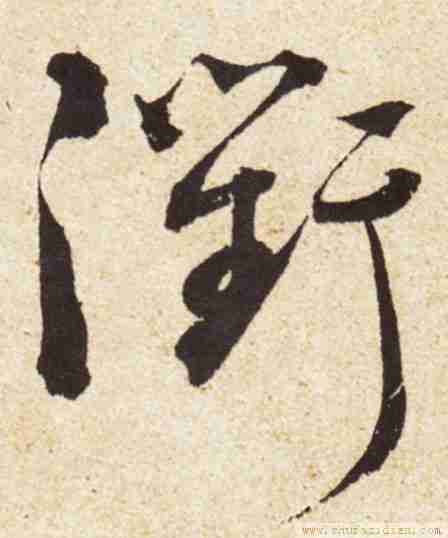 衢
www.shufazidian.com